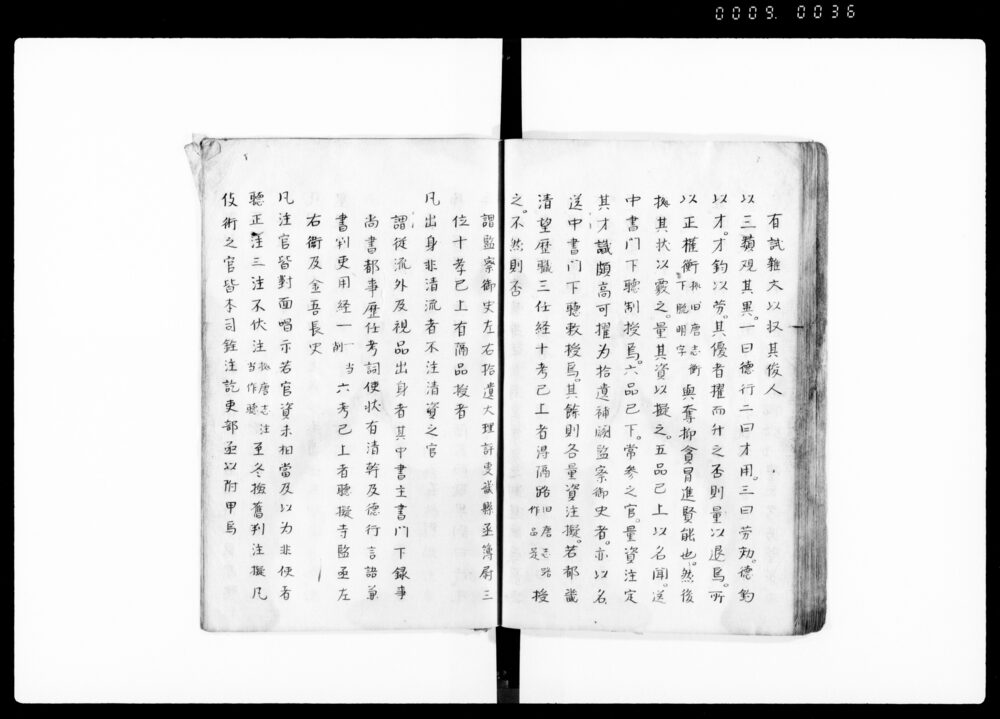 0009. 0036
有試雜大以収其俊人
以三類观其異。一曰德行二曰才用。三曰劳効。德鈞
以才。才鈞以劳。其優者擢而升之否則量以退焉。所
以正權衡 旧唐志衡下脱明字 與奪抑貪冒進賢能也。然後
拠其状以覈之。量其資以擬之。五品已上以名聞。送
中書門下聽制授焉。六品已下。常参之官。量資注定
其才識頗高可擢为拾遺補闕監察御史者。亦以名
送中書門下聽敕授焉。其餘則各量資注擬。若都畿
清望歷職三任经十考已上者得隔路 旧唐志路作品是 授
之。不然則否
謂監察御史左右拾遺大理評事畿縣丞簿尉三
位十考已上有隔品授者
凡出身非清流者不注清資之官
謂從流外及視品出身者其中書主書門下録事
尚書都事歷任考詞使状有清幹及德行言語兼
書判吏用经一 一当削 六考已上者聽擬寺監丞左
右衛及金吾長史
凡注官皆對面唱示若官資未相當及以为非便者
聽正注三注不伏注 拠唐志注当作聽 至冬檢舊判注擬凡
伎術之官皆本司銓注訖吏部丞以附甲焉